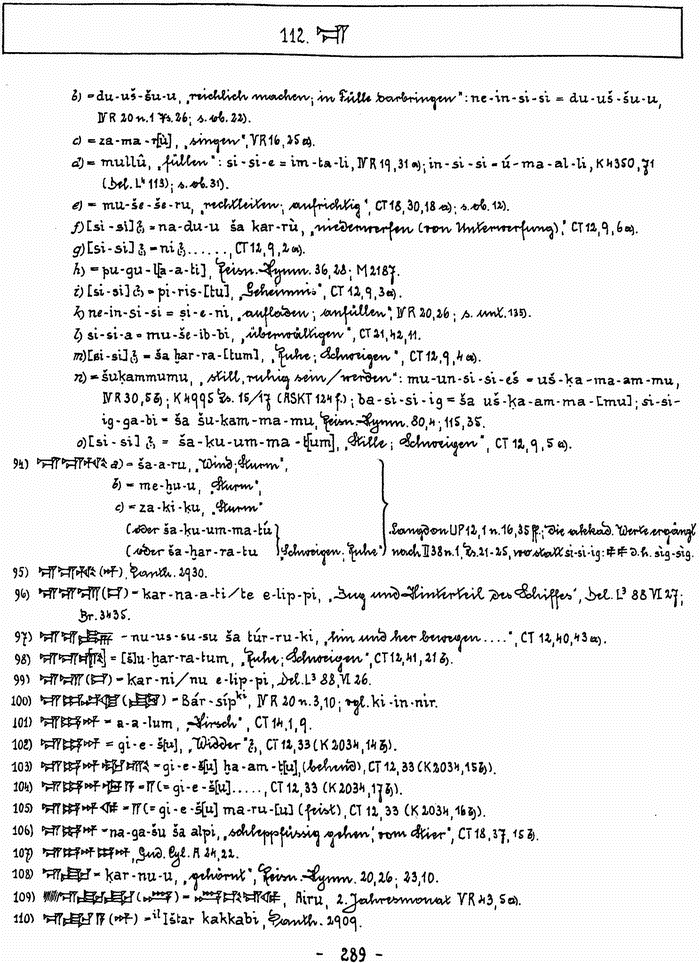 112. 𒋛
b) = du-uš-šu-u, „reichlich machen; in Fülle darbringen": ne-in-si-si = du-uš-šu-u,
IV R 20 n. 1 Vs. 26; s. ob. 22).
c) = za-ma-r[ù], „singen", V R 16, 25 a).
d) = mullû, „füllen": si-si-e = im-ta-li, IV R 19, 31 a); in-si-si = ú-ma-al-li, K 4350, 71
(Del. L⁴ 113); s. ob. 31).
e) = mu-še-še-ru, „rechtleiten; aufrichtig", CT 18, 30, 18 a); s. ob. 12).
f) [si-si] = na-du-u ša kar-rù, „niederwerfen (von Unterwerfung)," CT 12, 9, 6 a).
g) [si-si] = ni ......, CT 12, 9, 2 a).
h) = pu-gu-l[a-a-ti], Reisn. Hymn. 36, 28; M 2187.
i) [si-si] = pi-ris-[tu], „Geheimnis", CT 12, 9, 3 a).
k) ne-in-si-si = ṣi-e-ni, „aufladen; anfüllen", IV R 20, 26; s. unt. 135).
l) si-si-a = mu-še-ib-bi, „überwältigen", CT 21, 42, 11.
m) [si-si] = ša ḫar-ra-[tum], „Ruhe; Schweigen", CT 12, 9, 4 a).
n) = šuḳammumu, „still, ruhig sein/werden": mu-un-si-si-eš = uš-ḳa-ma-am-mu,
IV R 30, 5 b); K 4995 Rs. 15/17 (ASKT 124 f.); ba-si-si-ig = ša uš-ḳa-am-ma-[mu]; si-si-
ig-ga-bi = ša šu-kam-ma-mu, Reisn. Hymn. 80, 4; 115, 35.
o) [si-si] = ša-ku-um-ma-t[um], „Stille; Schweigen", CT 12, 9, 5 a).
94) a) = ša-a-ru, „Wind; Sturm",
b) = me-ḫu-u, „Sturm",
c) = za-ki-ku, „Sturm"
(oder ša-ku-um-ma-tú
(oder ša-ḫar-ra-tu „Schweigen; Ruhe"
Langdon UP 12, 1 n. 16, 35 ff.; die akkad. Werte ergänzt
nach II 38 n. 1, Rs. 21-25, wo statt si-si-ig: d. h. sìg-sìg.
95) Panth. 2930.
96) = kar-na-a-ti/te e-lip-pi, „Bug und Hinterteil des Schiffes", Del. L³ 88 VI 27;
Br. 3435.
97) = nu-us-su-su ša túr-ru-ki, „hin und her bewegen ....", CT 12, 40, 43 a).
98) = [š]u-ḫar-ra-tum, „Ruhe; Schweigen", CT 12, 41, 21 b).
99) = kar-ni/nu e-lip-pi, Del. L³ 88, VI 26.
100) = Bár-síp ki, IV R 20 n. 3, 10; vgl. ki-in-nir.
101) = a-a-lum, „Hirsch", CT 14, 1, 9.
102) = gi-e-š[u], „Widder", CT 12, 33 (K 2034, 14 b).
103) = gi-e-š[u] ḫa-am-ṭ[u], (behend), CT 12, 33 (K 2034, 15 b).
104) = (= gi-e-š[u] ....., CT 12, 33 (K 2034, 17 b).
105) = (= gi-e-š[u] ma-ru-[u] (feist), CT 12, 33 (K 2034, 16 b).
106) = na-ga-šu ša alpi, „schleppfüssig gehen, vom Stier", CT 18, 37, 15 b).
107) Gud. Cyl. A 24, 22.
108) = ḳar-nu-u, „gehörnt", Reisn. Hymn. 20, 26; 23, 10.
109) Airu, 2. Jahresmonat V R 43, 5 a).
110) = il Ištar kakkabi, Panth. 2909.
- 289 -